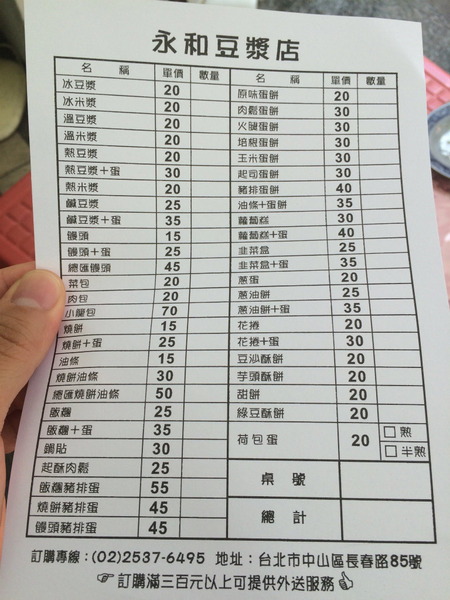 永和豆漿店
名 稱 單價 數量
冰豆漿 20
冰米漿 20
溫豆漿 20
溫米漿 20
熱豆漿 20
熱豆漿+蛋 30
熱米漿 20
鹹豆漿 25
鹹豆漿+蛋 35
饅頭 15
饅頭+蛋 25
總匯饅頭 45
菜包 20
肉包 20
小籠包 70
燒餅 15
燒餅+蛋 25
油條 15
燒餅油條 30
總匯燒餅油條 50
飯糰 25
飯糰+蛋 35
鍋貼 30
起酥肉鬆 25
飯糰豬排蛋 55
燒餅豬排蛋 45
饅頭豬排蛋 45
名 稱 單價 數量
原味蛋餅 20
肉鬆蛋餅 30
火腿蛋餅 30
培根蛋餅 30
玉米蛋餅 30
起司蛋餅 30
豬排蛋餅 40
油條+蛋餅 35
蘿蔔糕 30
蘿蔔糕+蛋 40
韭菜盒 25
韭菜盒+蛋 35
蔥蛋 20
蔥油餅 25
蔥油餅+蛋 35
花捲 20
花捲+蛋 30
豆沙酥餅 20
芋頭酥餅 20
甜餅 20
綠豆酥餅 20
荷包蛋 20 □ 熟
□ 半熟
桌 號
總 計
訂購專線:(02)2537-6495 地址:台北市中山區長春路85號
訂購滿三百元以上可提供外送服務